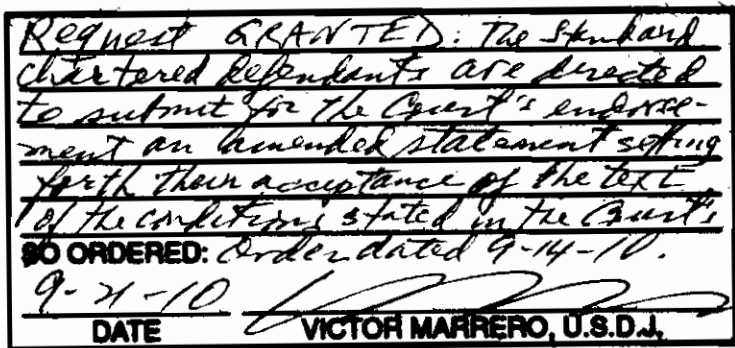 Request GRANTED. The Standard
Chartered defendants are directed
to submit for the Court's endorse-
ment an amended statement setting
forth their acceptance of the text
of the conditions stated in the Court's
SO ORDERED: Order dated 9-14-10.
9-21-10
DATE VICTOR MARRERO, U.S.D.J.